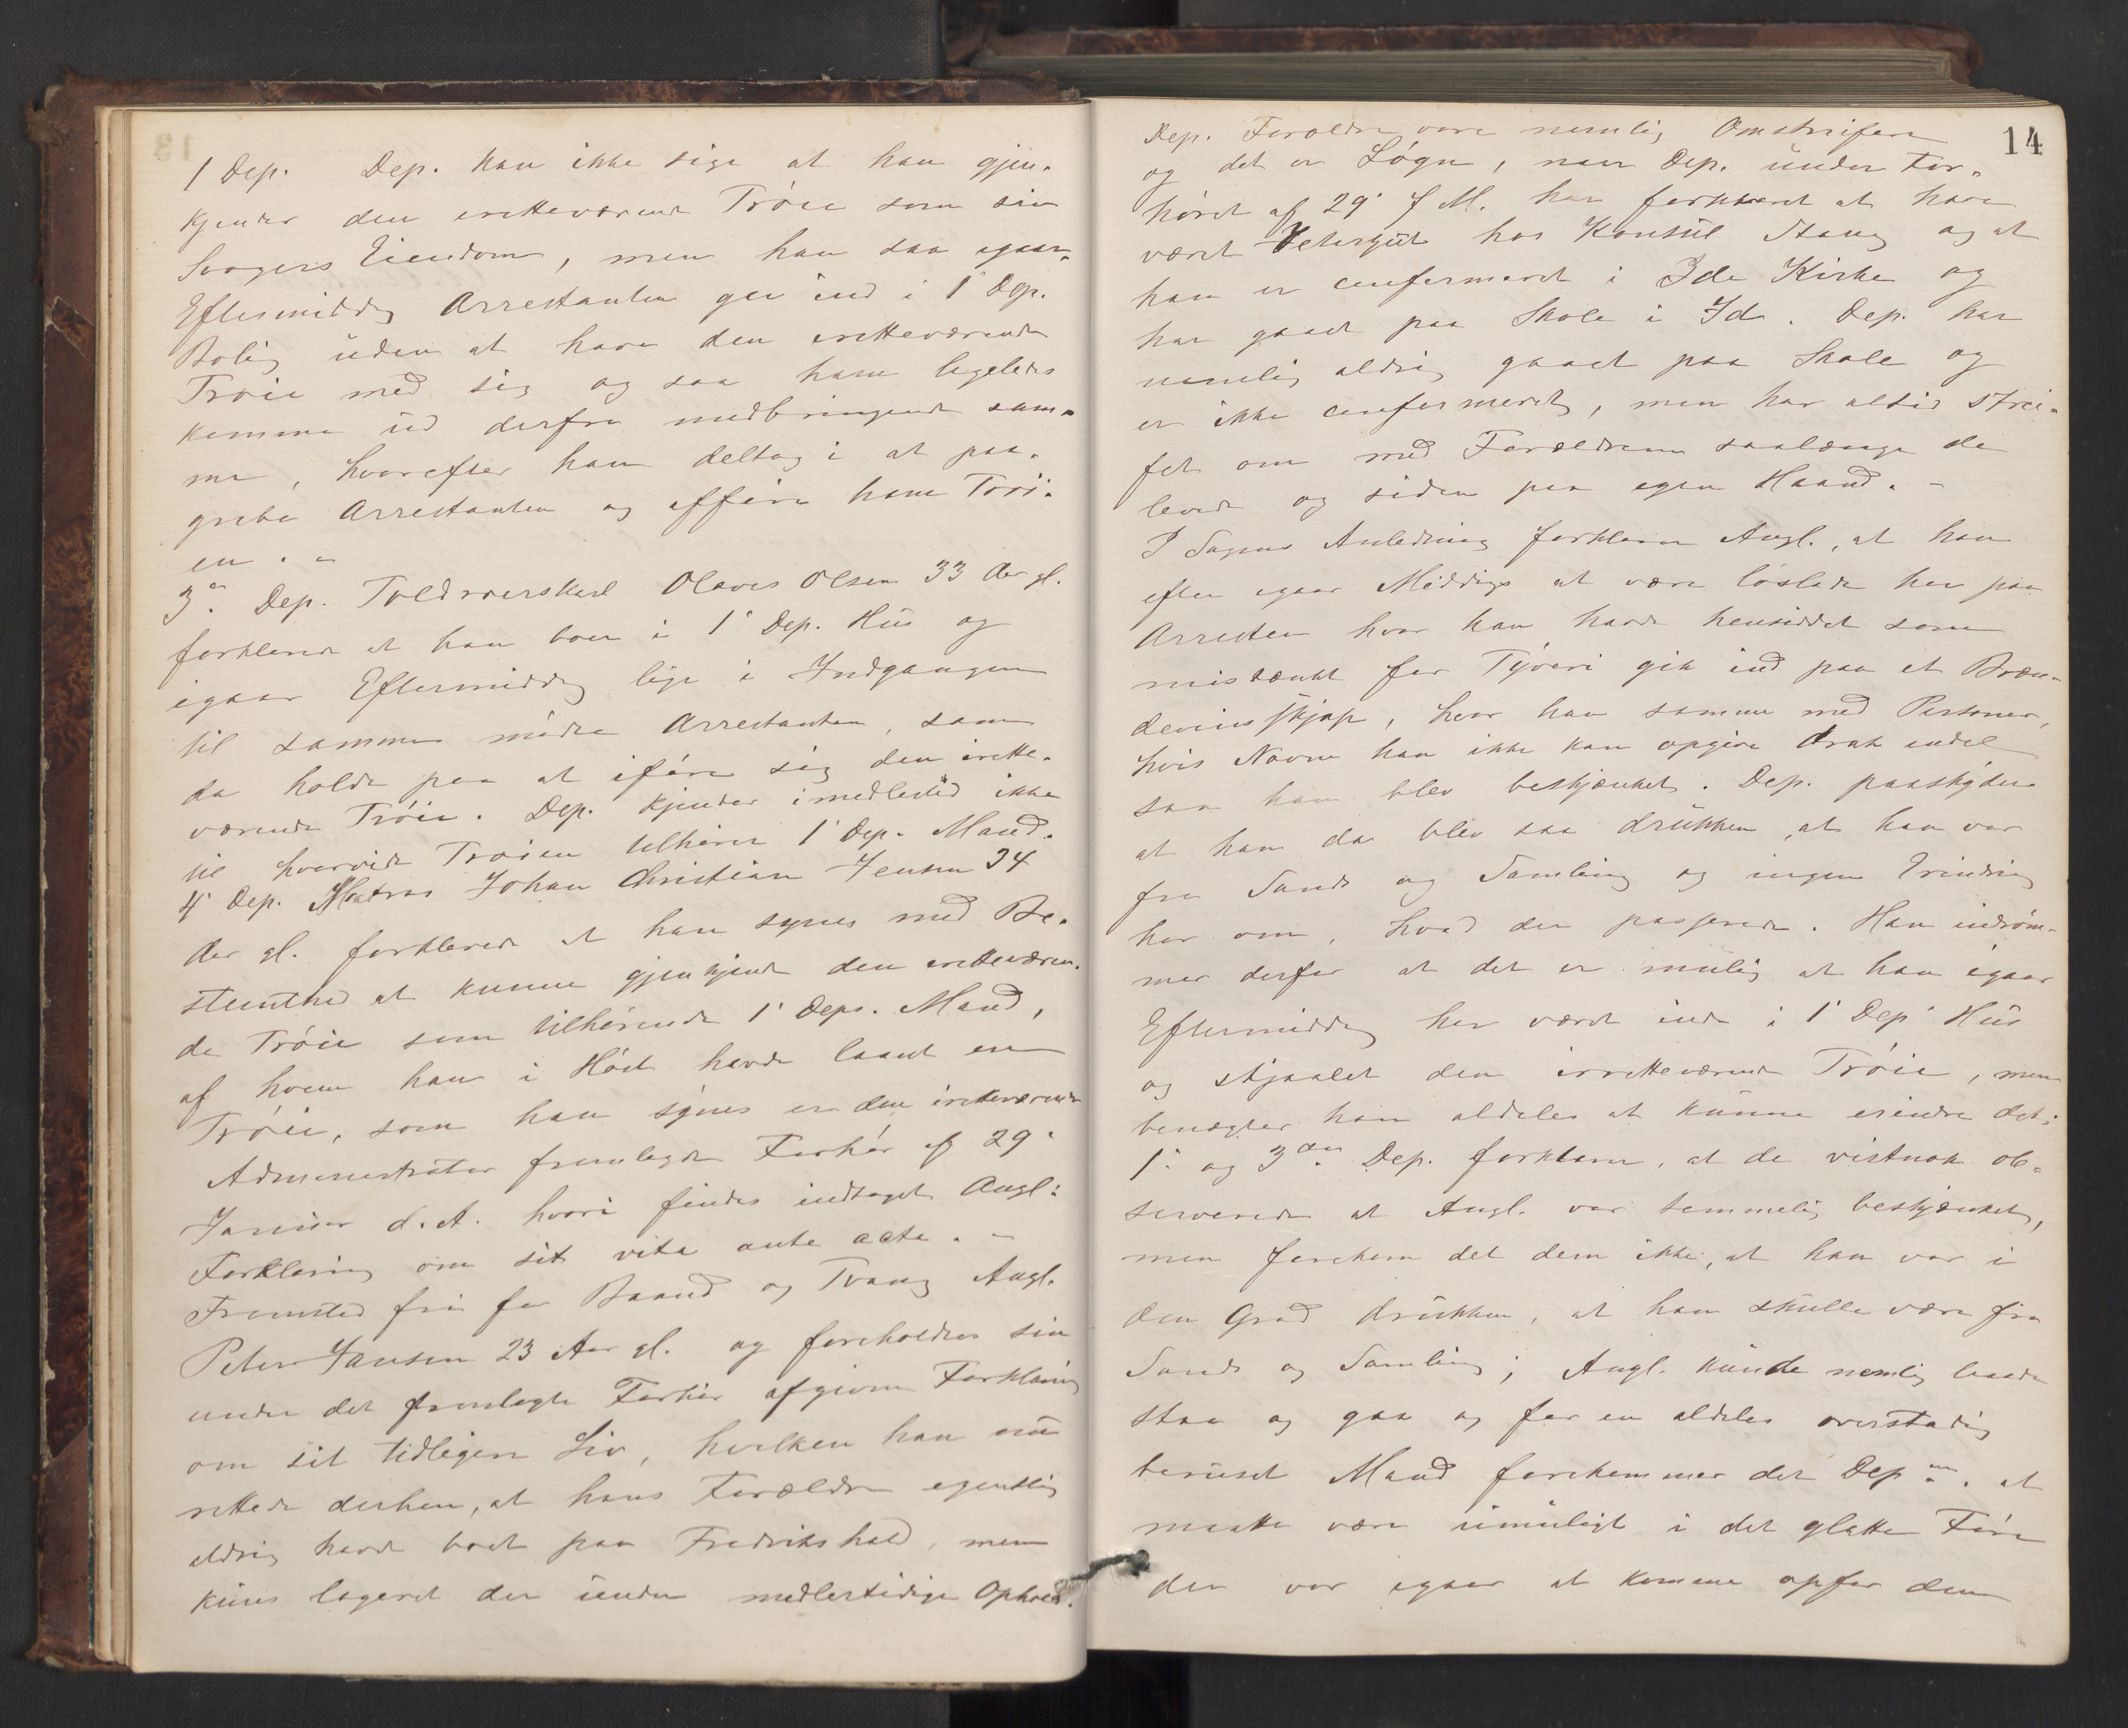 1 Dep. Dep. kan ikke sige at han gjen-
kjender den iretteværende Trøie som sin
Svogers Eiendom, men han saa igaar
Eftermiddag Arrestanten gaa ind i 1' Dep.
Bolig uden at have den iretteværende
Trøie med sig og saa ham ligeledes
komme ud derfra medbringende sam-
me, hvorefter han deltog i at paa-
gribe Arrestanten og afføre ham Trøi-
en. -
3' Dep. Toldroerskarl Olaves Olsen 33 Aar gl.
forklarede at han boer i 1' Dep. Hus og
igaar Eftermiddag lige i Indgangen
til samme mødte Arrestanten, som
da holdt paa at iføre sig den irette-
værende Trøie. Dep. kjender imedlertid ikke
til hvorvidt Trøien tilhører 1' Dep. Mand.
4' Dep. Matros Johan Christian Jensen 34
Aar gl. forklarede at han synes med Be-
stemthed at kunne gjenkjende den iretteværen-
de Trøie som tilhørende 1' Deps. Mand,
af hvem han i Høst havde laant en
Trøie, som han synes er den iretteværende
Administrator fremlagde Forhør af 29'
Januar d. A. hvori findes indtaget Angl:
Forklaring om sit vita ante acta. -
Fremsted fri for Baand og Tvang Angl.
Peter Jansen 23 Aar gl. og foreholdtes sin
under det fremlagte Forhør afgivne Forklaring
om sit tidligere Liv, hvilken han nu
rettede derhen, at hans Forældre egentlig
aldrig havde boet paa Fredrikshald, men
kuns logeret der under midlertidige Ophold.
14
Dep. Forældre vare nemlig Omstreifere
og det er Løgn, naar Dep. under For-
høret af 29' f M. har forklaret at have
været Visergut hos Konsul Stang og at
han er confirmeret i Ide Kirke og
har gaaet paa Skole i Id. Dep. har
nemlig aldrig gaaet paa Skole og
er ikke confirmeret, men har altid strei-
fet om med Forældrene saalænge de
levede og siden paa egen Haand. -
I Sagens Anledning forklarer Angl., at han
efter igaar Middags at være løsladt her paa
Arresten hvor han havde hensiddet som
mistænkt for Tyveri gik ind paa et Bræn-
devinsskjap, hvor han sammen med Personer,
hvis Navne han ikke kan opgive drak endel
saa han blev beskjænket. Dep. paaskyder
at han da blev saa drukken, at han var
fra Sands og Samling og ingen Erindring
har om, hvad der passerede. Han indrøm-
mer derfor at det er mulig at han igaar
Eftermiddag har været inde i 1' Dep' Hus
og stjaalet den iretteværende Trøie, men
benægter han aldeles at kunne erindre det;
1' og 3' Dep. forklarer, at de vistnok ob-
serverede at Angl. var temmelig beskjænket,
men forekom det dem ikke, at han var i
den Grad drukken, at han skulle være fra
Sands og Samling; Angl. kunde nemlig baade
staa og gaa og for en aldeles overstadig
beruset Mand forekommer det Dep. at
maatte være umuligt i det glatte Føre
der var igaar at komme op for den